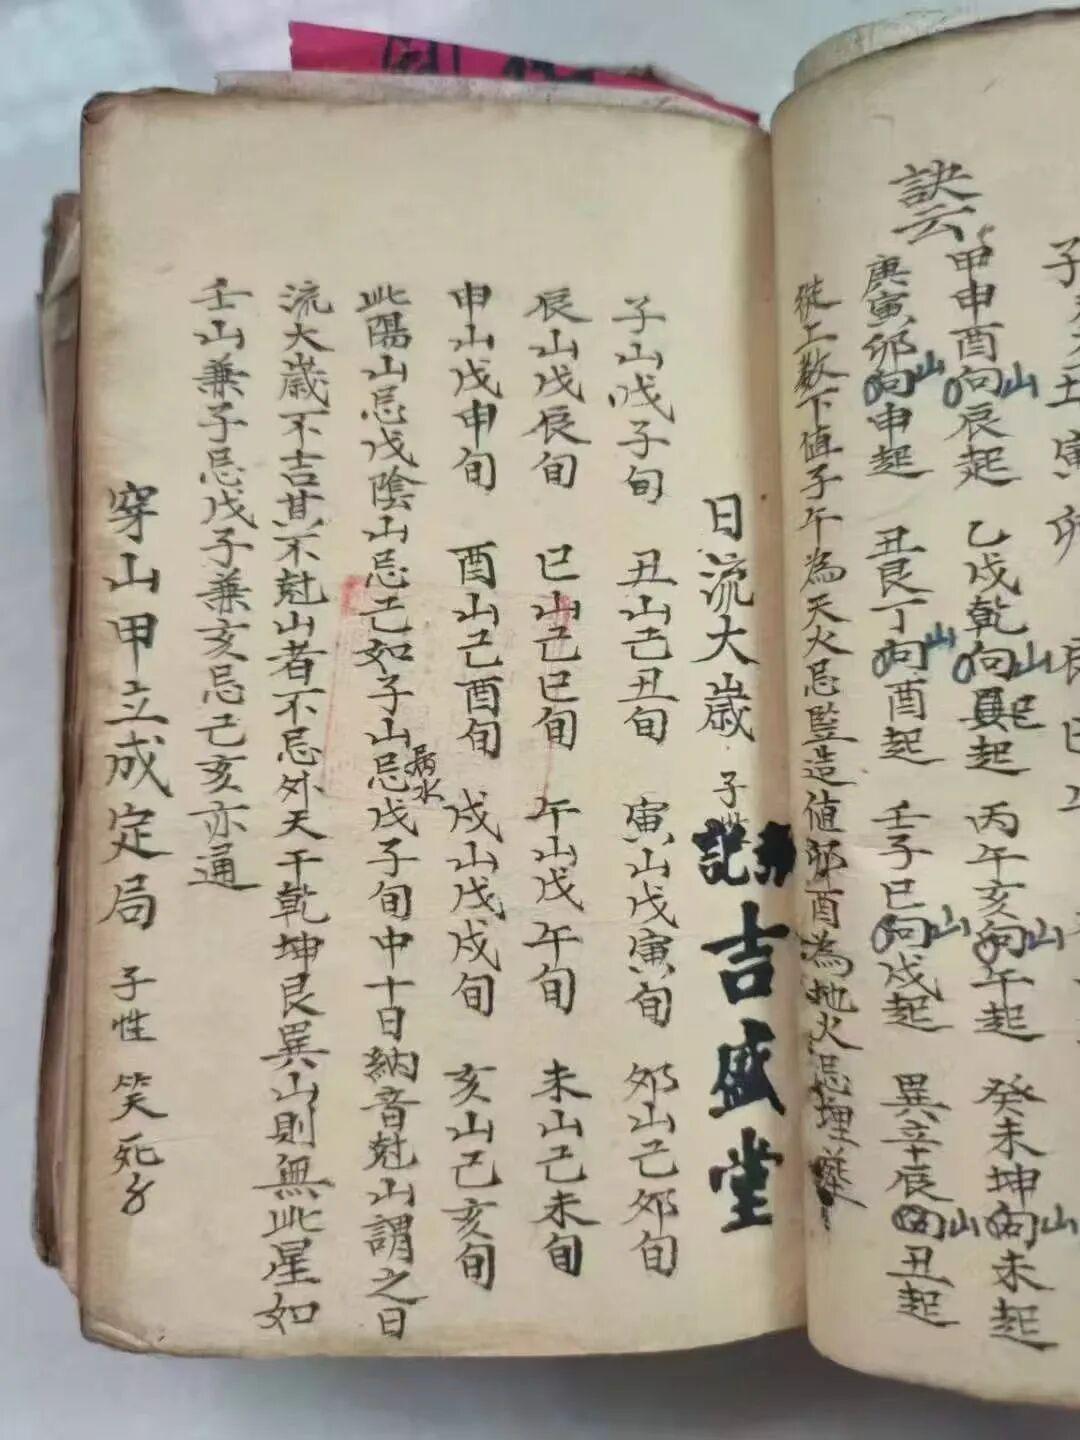 訣云
甲申酉向山辰起 乙戌乾向山巽起 丙午亥向山午起 癸未坤向山未起
庚寅卯向山申起 丑艮丁向山酉起 壬子巳向山戌起 巽辛辰向山丑起
從上數下值子午為天火忌竪造值卯酉為地火忌埋葬
日流大歲 子
記 吉盛堂
子山戊子旬 丑山己丑旬 寅山戊寅旬 卯山己卯旬
辰山戊辰旬 巳山己巳旬 午山戊午旬 未山己未旬
申山戊申旬 酉山己酉旬 戌山戊戌旬 亥山己亥旬
此陽山忌戊陰山忌己如子山忌戊子旬中十日納音尅山謂之日
病水
流大歲不吉其不尅山者不忌外天干乾坤艮巽山則無此星如
壬山兼子忌戊子兼亥忌己亥亦通
穿山甲立成定局 子性 笑死